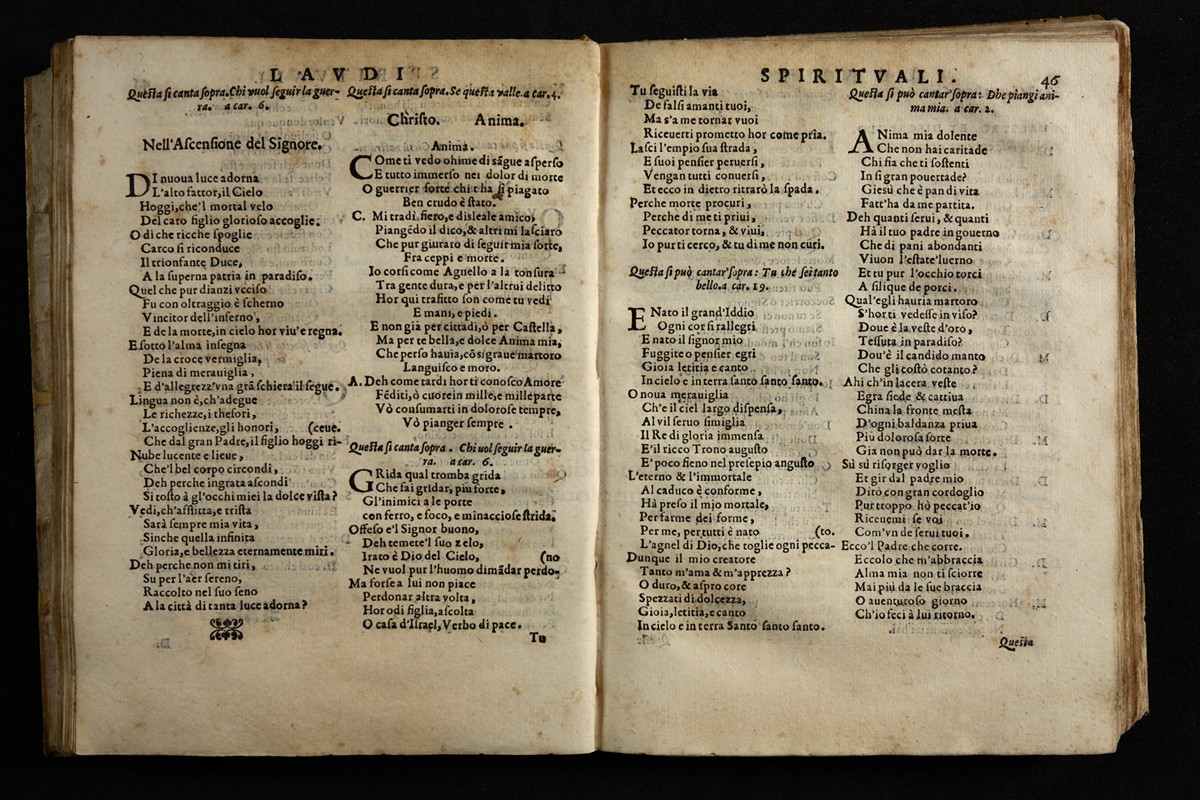 LAVDI
Questa si canta sopra. Chi vuol seguir la guer-
ra. a car. 6.
Nell'Ascensione del Signore.
DI nuoua luce adorna
L'alto fattor, il Cielo
Hoggi, che'l mortal velo
Del caro figlio glorioso accoglie.
O di che ricche spoglie
Carco si riconduce
Il trionfante Duce,
A la superna patria in paradiso.
Quel che pur dianzi vcciso
Fu con oltraggio è scherno
Vincitor dell'inferno,
E de la morte, in cielo hor viu'e regna.
E sotto l'alma insegna
De la croce vermiglia,
Piena di merauiglia,
E d'allegrezz'vna grã schiera il segue.
Lingua non è, ch'adegue
Le richezze, i thesori,
L'accoglienze, gli honori, (ceue.
Che dal gran Padre, il figlio hoggi ri-
Nube lucente e lieue,
Che'l bel corpo circondi,
Deh perche ingrata ascondi
Si tosto à gl'occhi miei la dolce vista?
Vedi, ch'afflitta, e trista
Sarà sempre mia vita,
Sinche quella infinita
Gloria, e bellezza eternamente miri.
Deh perche non mi tiri,
Su per l'aer sereno,
Raccolto nel suo seno
A la città di tanta luce adorna?
Questa si canta sopra. Se questa valle. a car. 4.
Christo. Anima.
Anima.
COme ti vedo ohime di sãgue asperso
E tutto immerso nei dolor di morte
O guerrier forte chi t'ha si piagato
Ben crudo è stato.
C. Mi tradì fiero, e disleale amico,
Piangẽdo il dico, & altri mi lasciaro
Che pur giuraro di seguir mia sorte,
Fra ceppi e morte.
Io corsi come Agnello a la tonsura
Tra gente dura, e per l'altrui delitto
Hor qui trafitto son come tu vedi
E mani, e piedi.
E non già per cittadi, ò per Castella,
Ma per te bella, e dolce Anima mia,
Che perso hauia, cõ si graue martoro
Languisco e moro.
A. Deh come tardi hor ti conosco Amore
Fẽditi, ò cuore in mille, e mille parte
Vò consumarti in dolorose tempre,
Vò pianger sempre.
Questa si canta sopra. Chi uol seguir la guer-
ra. a car. 6.
GRida qual tromba grida
Che fai gridar, piu forte,
Gl'inimici a le porte
con ferro, e foco, e minacciose strida.
Offeso e'l Signor buono,
Deh temete'l suo zelo,
Irato è Dio del Cielo, (no
Ne vuol pur l'huomo dimãdar perdo-
Ma forse a lui non piace
Perdonar altra volta,
Hor odi figlia, ascolta
O casa d'Israel, Verbo di pace.
Tu
SPIRITVALI. 46
Tu seguisti la via
De falsi amanti tuoi,
Ma s'a me tornar vuoi
Riceuerti prometto hor come pria.
Lasci l'empio sua strada,
E suoi pensier peruersi,
Vengan tutti conuersi,
Et ecco in dietro ritrarò la spada.
Perche morte procuri,
Perche di me ti priui,
Peccator torna, & viui,
Io pur ti cerco, & tu di me non curi.
Questa si può cantar'sopra: Tu che sei tanto
bello. a car. 19.
E Nato il grand'Iddio
Ogni cor si rallegri
E nato il signor mio
Fuggite o pensier egri
Gioia letitia e canto
In cielo e in terra santo santo santo.
O noua merauiglia
Ch'e il ciel largo dispensa,
Al vil seruo simiglia
Il Re di gloria immensa
E'il ricco Trono augusto
E' poco fieno nel presepio angusto
L'eterno & l'immortale
Al caduco è conforme,
Hà preso il mio mortale,
Per farme dei forme,
Per me, per tutti è nato (to.
L'agnel di Dio, che toglie ogni pecca-
Dunque il mio creatore
Tanto m'ama & m'apprezza?
O duro, & aspro core
Spezzati di dolcezza,
Gioia, letitia, e canto
In cielo e in terra Santo santo santo.
Questa si può cantar'sopra: Dhe piangi ani-
ma mia. a car. 2.
ANima mia dolente
Che non hai caritade
Chi fia che ti sostenti
In si gran pouertade?
Giesù che è pan di vita
Fatt'ha da me partita.
Deh quanti serui, & quanti
Hà il tuo padre in gouerno
Che di pani abondanti
Viuon l'estate'luerno
Et tu pur l'occhio torci
A silique de porci.
Qual'egli hauria martoro
S'hor ti vedesse in viso?
Doue è la veste d'oro,
Tessuta in paradiso?
Dou'è il candido manto
Che gli costò cotanto?
Ahi ch'in lacera veste
Egra siede & cattiua
China la fronte mesta
D'ogni baldanza priua
Piu dolorosa sorte
Gia non può dar la morte.
Sù sù risorger voglio
Et gir dal padre mio
Dirò con gran cordoglio
Pur troppo hò peccat'io
Riceuemi se voi
Com'vn de serui tuoi.
Ecco'l Padre che corre.
Eccolo che m'abbraccia
Alma mia non ti sciorre
Mai più da le sue braccia
O auenturoso giorno
Ch'io feci à lui ritorno.
Questa